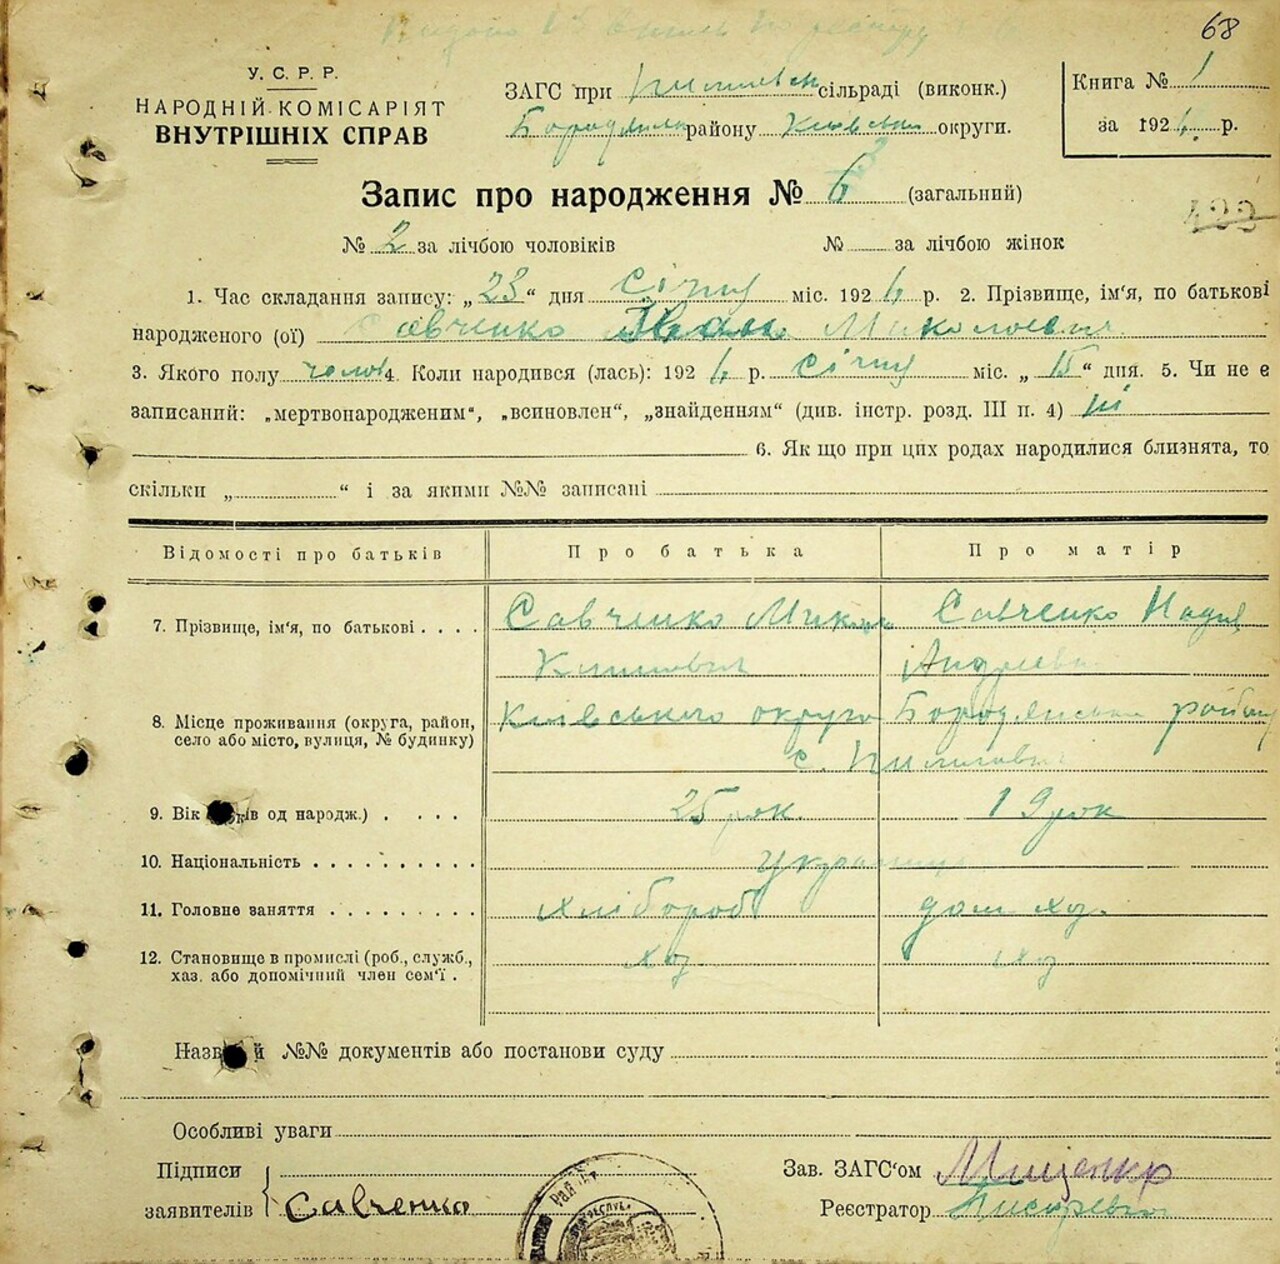 68
У. С. Р. Р.
НАРОДНІЙ КОМІСАРІЯТ
ВНУТРІШНІХ СПРАВ
ЗАГС при сільраді (виконк.)
району округи.
Книга № 1
за 192 р.
Запис про народження № 6 (загальний)
№ 2 за лічбою чоловіків № за лічбою жінок
1. Час складання запису: „23“ дня Січня міс. 1926 р. 2. Прізвище, ім'я, по батькові
народженого (ої) Савченко Іван Миколаевич
3. Якого полу чолов 4. Коли народився (лась): 1926 р. Січня міс. „15“ дня. 5. Чи не є
записаний: „мертвонародженим“, „всиновлен“, „знайденням“ (див. інстр. розд. III п. 4) ні
6. Як що при цих родах народилися близнята, то
скільки „ “ і за якими №№ записані
Відомості про батьків Про батька Про матір
7. Прізвище, ім'я, по батькові . . . . Савченко Микола Савченко Надія
Андреевна
8. Місце проживання (округа, район, Київського округа Бородянськ район
село або місто, вулиця, № будинку) с.
9. Вік ків од народж.) . . . . 25 рок. 19 рок
10. Національність . . . . . . . . . .
11. Головне заняття . . . . . . . . . хлібороб дом хоз.
12. Становище в промислі (роб., служб., хоз хоз
хаз. або допомічний член сем'ї .
Назв й №№ документів або постанови суду
Особливі уваги
Підписи
заявителів Савченко
Зав. ЗАГС'ом Мищенко
Реєстратор